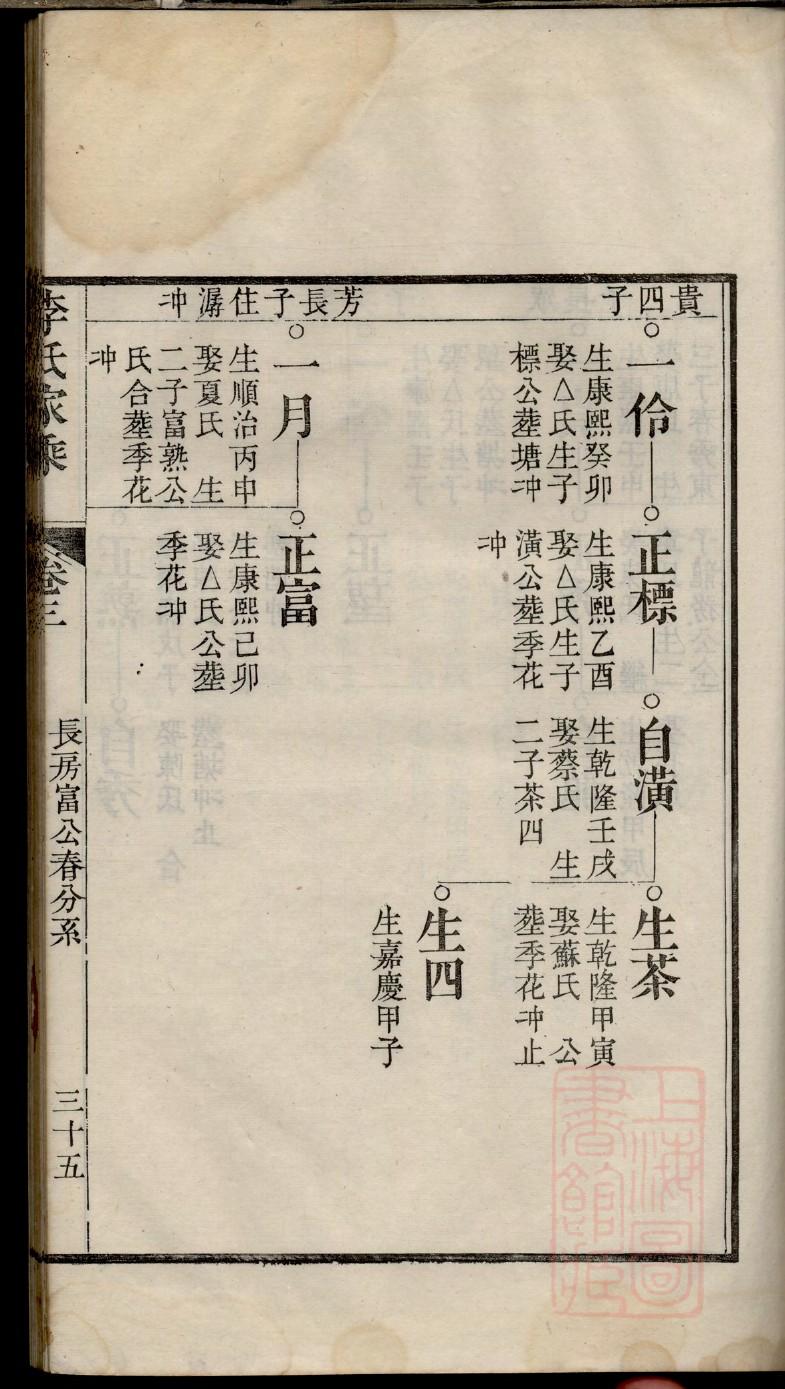 貴四子
一伶
生康熙癸卯
娶△氏生子
標公塟塘冲
正標
生康熙乙酉
娶△氏生子
潢公塟季花
冲
自潢
生乾隆壬戌
娶蔡氏　生
二子茶四
生茶
生乾隆甲寅
娶蘇氏　公
塟季花冲止
生四
生嘉慶甲子
芳長子住潺冲
一月
生順治丙申
娶夏氏　生
二子富熟公
氏合塟季花
冲
正富
生康熙己卯
娶△氏公塟
季花冲
李氏家乘
卷三
長房富公春分系
三十五
上海圖
書館藏